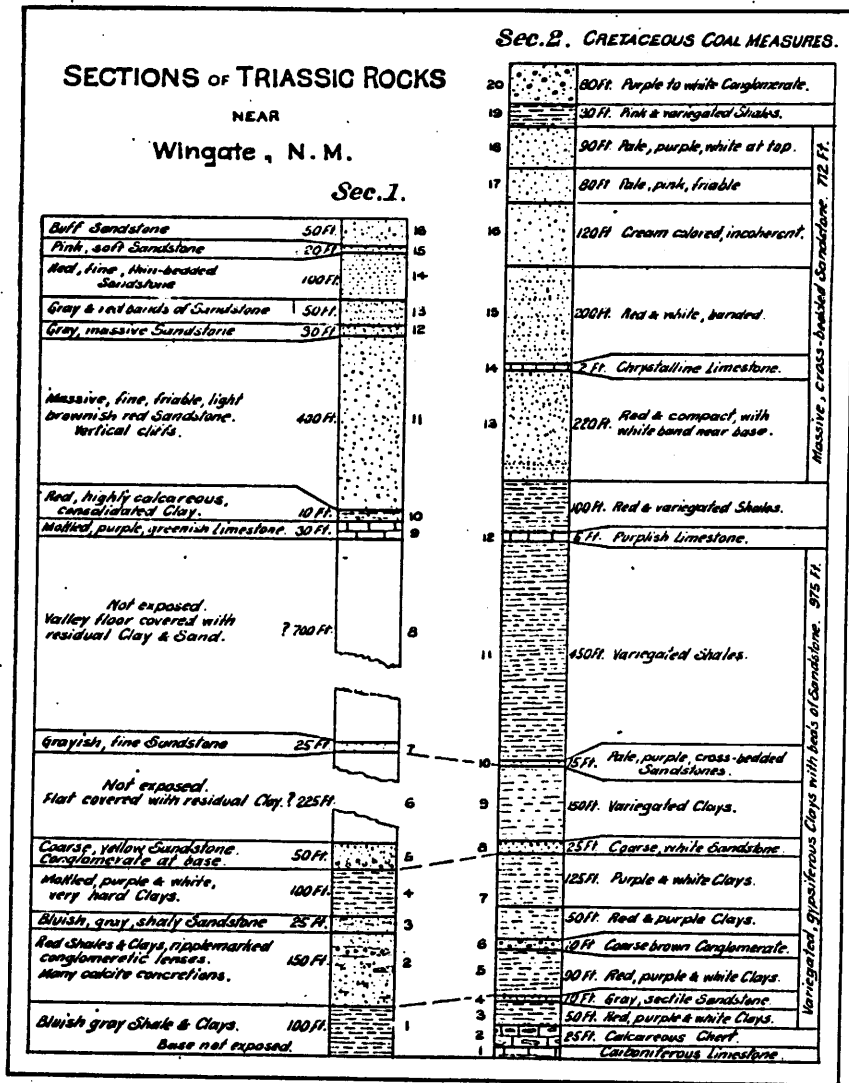 Sec.2. CRETACEOUS COAL MEASURES.
SECTIONS OF TRIASSIC ROCKS
NEAR
Wingate, N.M.
Sec.1.
Buff Sandstone 50Ft. 16
Pink, soft Sandstone 20Ft. 15
Red, fine, thin-bedded
Sandstone 100Ft. 14
Gray & red bands of Sandstone 50Ft. 13
Gray, massive Sandstone 30Ft. 12
Massive, fine, friable, light
brownish red Sandstone.
Vertical cliffs. 400Ft. 11
Red, highly calcareous,
consolidated Clay. 10Ft. 10
Mottled, purple, greenish Limestone. 30Ft. 9
Not exposed.
Valley floor covered with
residual Clay & Sand. ? 700Ft. 8
Grayish, fine Sandstone 25Ft 7
Not exposed.
Flat covered with residual Clay. ? 225Ft. 6
Coarse, yellow Sandstone.
Conglomerate at base. 50Ft. 5
Mottled, purple & white,
very hard Clays. 100Ft. 4
Bluish, gray, shaly Sandstone 25Ft. 3
Red Shales & Clays, ripplemarked
conglomeretic lenses.
Many calcite concretions. 150Ft. 2
Bluish gray Shale & Clays. 100Ft. 1
Base not exposed.
20 80Ft. Purple to white Conglomerate.
19 30Ft. Pink & variegated Shales.
18 90Ft. Pale, purple, white at top.
17 80Ft Pale, pink, friable
16 120Ft. Cream colored, incoherent.
15 200Ft. Red & white, banded.
14 2Ft. Chrystalline Limestone.
13 220Ft. Red & compact, with
white band near base.
100Ft. Red & variegated Shales.
12 6Ft. Purplish Limestone.
11 450Ft. Variegated Shales.
10 15Ft. Pale, purple, cross-bedded
Sandstones.
9 150Ft. Variegated Clays.
8 25Ft Coarse, white Sandstone.
7 125Ft. Purple & white Clays.
50Ft. Red & purple Clays.
6 10Ft Coarse brown Conglomerate.
5 90Ft. Red, purple & white Clays.
4 10Ft. Gray, sectile Sandstone.
3 50Ft. Red, purple & white Clays.
2 25Ft. Calcareous Chert.
1 Carboniferous Limestone.
Massive, cross-bedded Sandstone. 712 Ft.
Variegated, gypsiferous Clays with beds of Sandstone. 975 Ft.